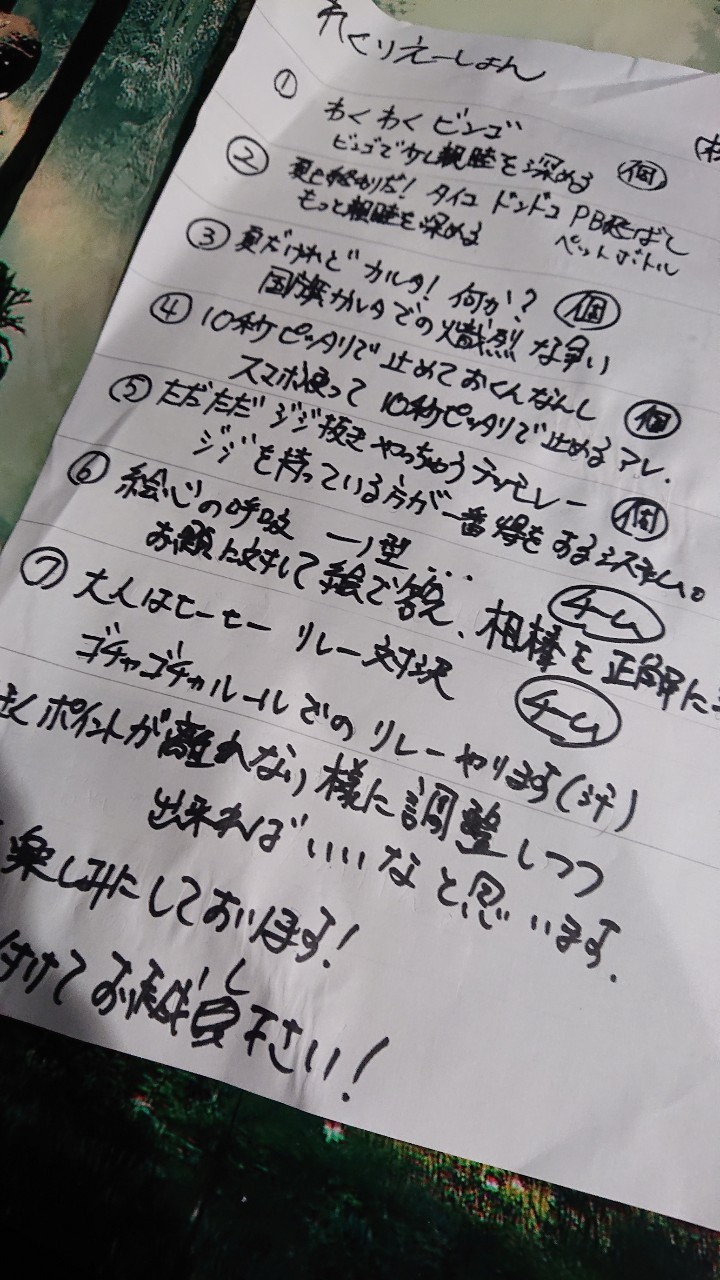 れくりえーしょん
① わくわく ビンゴ
ビンゴで少し親睦を深める 個
② 夏も終わりだ! タイコ ドンドコ PB飛ばし
もっと親睦を深める ペットボトル
③ 夏だけれど カルタ! 何か? 個
国旗カルタでの熾烈な争い
④ 10秒ピッタリで 止めておくんなんし 個
スマホ使って 10秒ピッタリで止めるアレ.
⑤ ただただ ジジ抜き やっちゃう 個
ジジを持っている方が一番得をするシステム。
⑥ 絵心の呼吸 一ノ型... チーム
お願に対して絵で答え、相棒を正解に
⑦ 大人はモーモー リレー対決 チーム
ゴチャゴチャルールでの リレーやります(汗)
ポイントが離れない様に調整しつつ
出来ればいいなと思います.
楽しみにしております!
付けてお越し下さい!